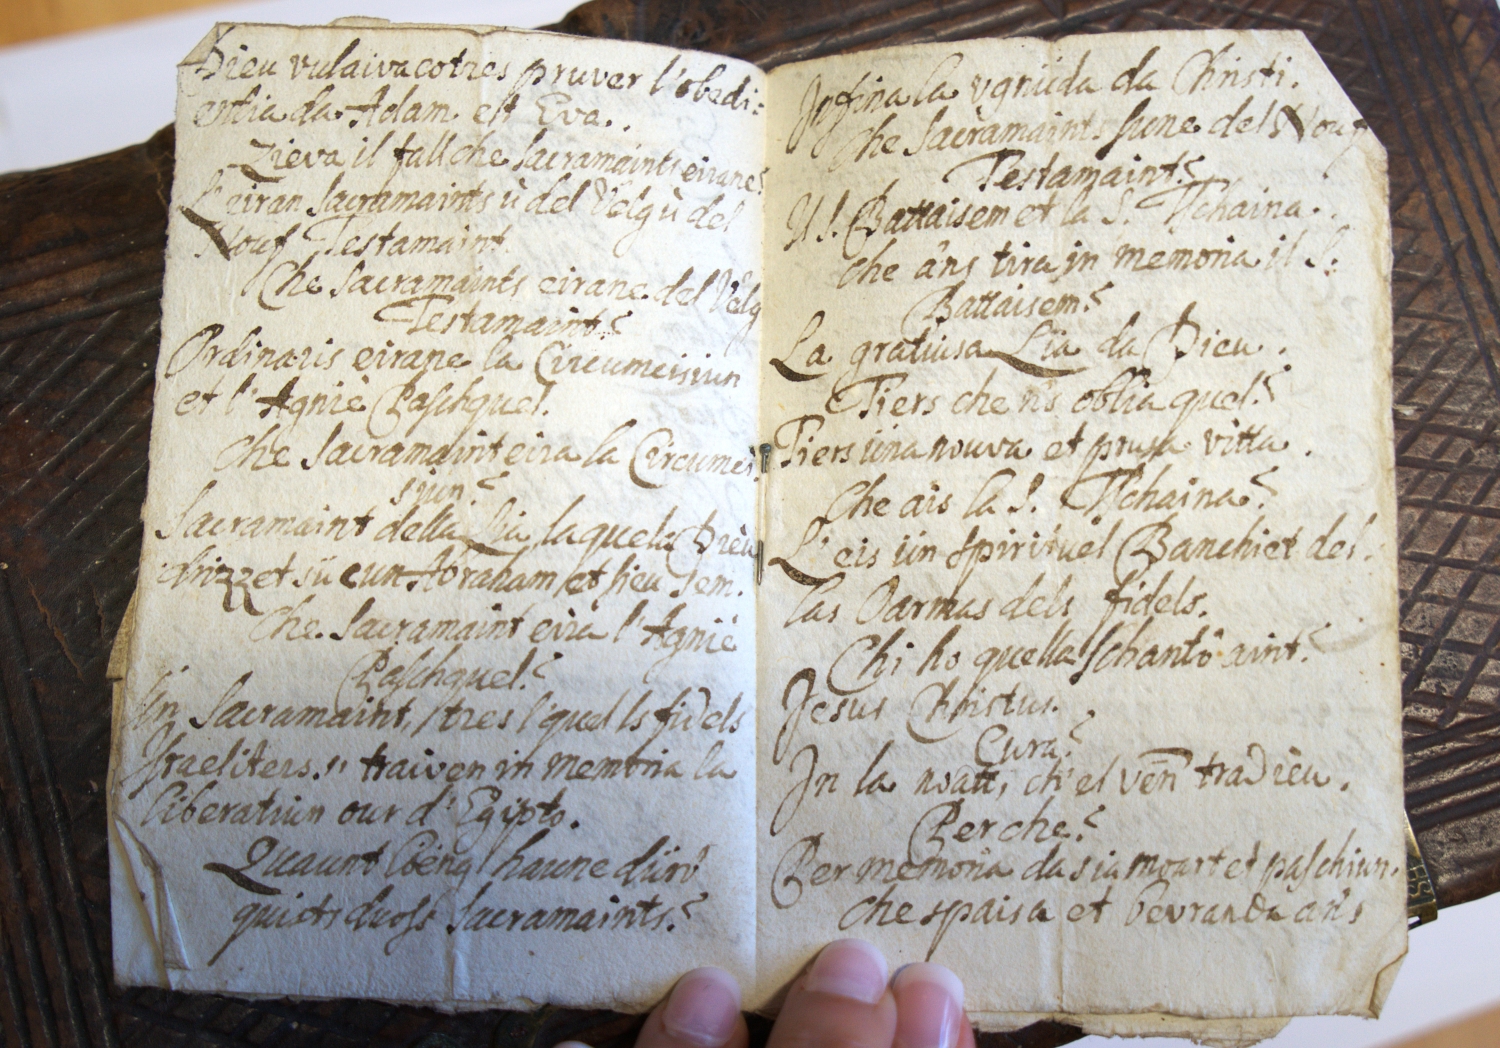 Dieu vulaiva cotres pruver l'obedi=
entia da Adam et Eva.
Zieva il fall che Sacramaints eirane?
L'eiran Sacramaints ù del Velg ù del
Nouf Testamaint.
Che Sacramaints eirane del Velg
Testamaint?
Ordinaris eirane la Circumcisiun
et l'Agnié Paschquel.
Che Sacramaint eira la Circumci=
siun?
Sacramaint della Lia, laquela Dieu
drizzet sü cun Abraham, et sieu sem.
Che Sacramaint eira l'Agnié
Paschquel?
Ün Sacramaint, tres l'quel ls fidels
Israeliters traiven in memoria la
liberatiun our d'Egipto.
Quaunt lœng haune dürò
quists duos Sacramaints?
Infina la vgnüda da Christi.
Che Sacramaints sune dels Nouf
Testamaint?
Il S. Battaisem et la S. Tschaina.
Che a'ns tira in memoria il S.
Battaisem?
La gratiusa Lia da Dieu.
Tiers che n's oblia quel?
Tiers üna nouva et prusa vitta.
Che ais la S. Tschaina?
L'eis ün spirituel Banchiet del=
las Oarmas dels fidels.
Chi ho quella schantô aint?
Jesus Christus.
Cura?
In la noatt, ch'el ven tradieu.
Per che?
Per memoria da sia moart et paschiun.
Che spaisa et bevranda ans